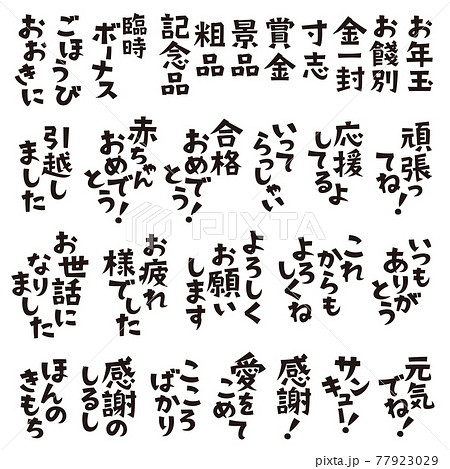 お年玉
お餞別
金一封
寸志
賞金
景品
粗品
記念品
臨時
ボーナス
ごほうび
おおきに
頑張っ
てね!
応援
してるよ
いって
らっしゃい
合格
おめで
とう!
赤ちゃん
おめで
とう!
引越し
しました
いつも
ありが
とう
これ
からも
よろ
しくね
よろしく
お願い
します
お疲れ
様でした
お世話に
なり
ました
元気
でね!
サン
キュー!
感謝!
愛を
こめて
こころ
ばかり
感謝の
しるし
ほんの
きもち
PIXTA
pixta.jp - 77923029